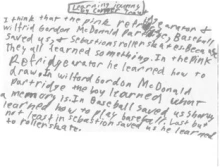 Learning journeys
I think that the pink refridgerator &
wilfrid Gordon McDonald Partridge, Baseball
Saved us, & Sebastions roller skates Because
They all learned something. In the Pink
Refridgerator he learned how to
draw in wilford Gordon McDonald
Partridge me boy learned what
a memory is In Baseball Saved us shorty
learned how to play baseball. Last but
not least in sebastion saved us he learned
to rollerskate.